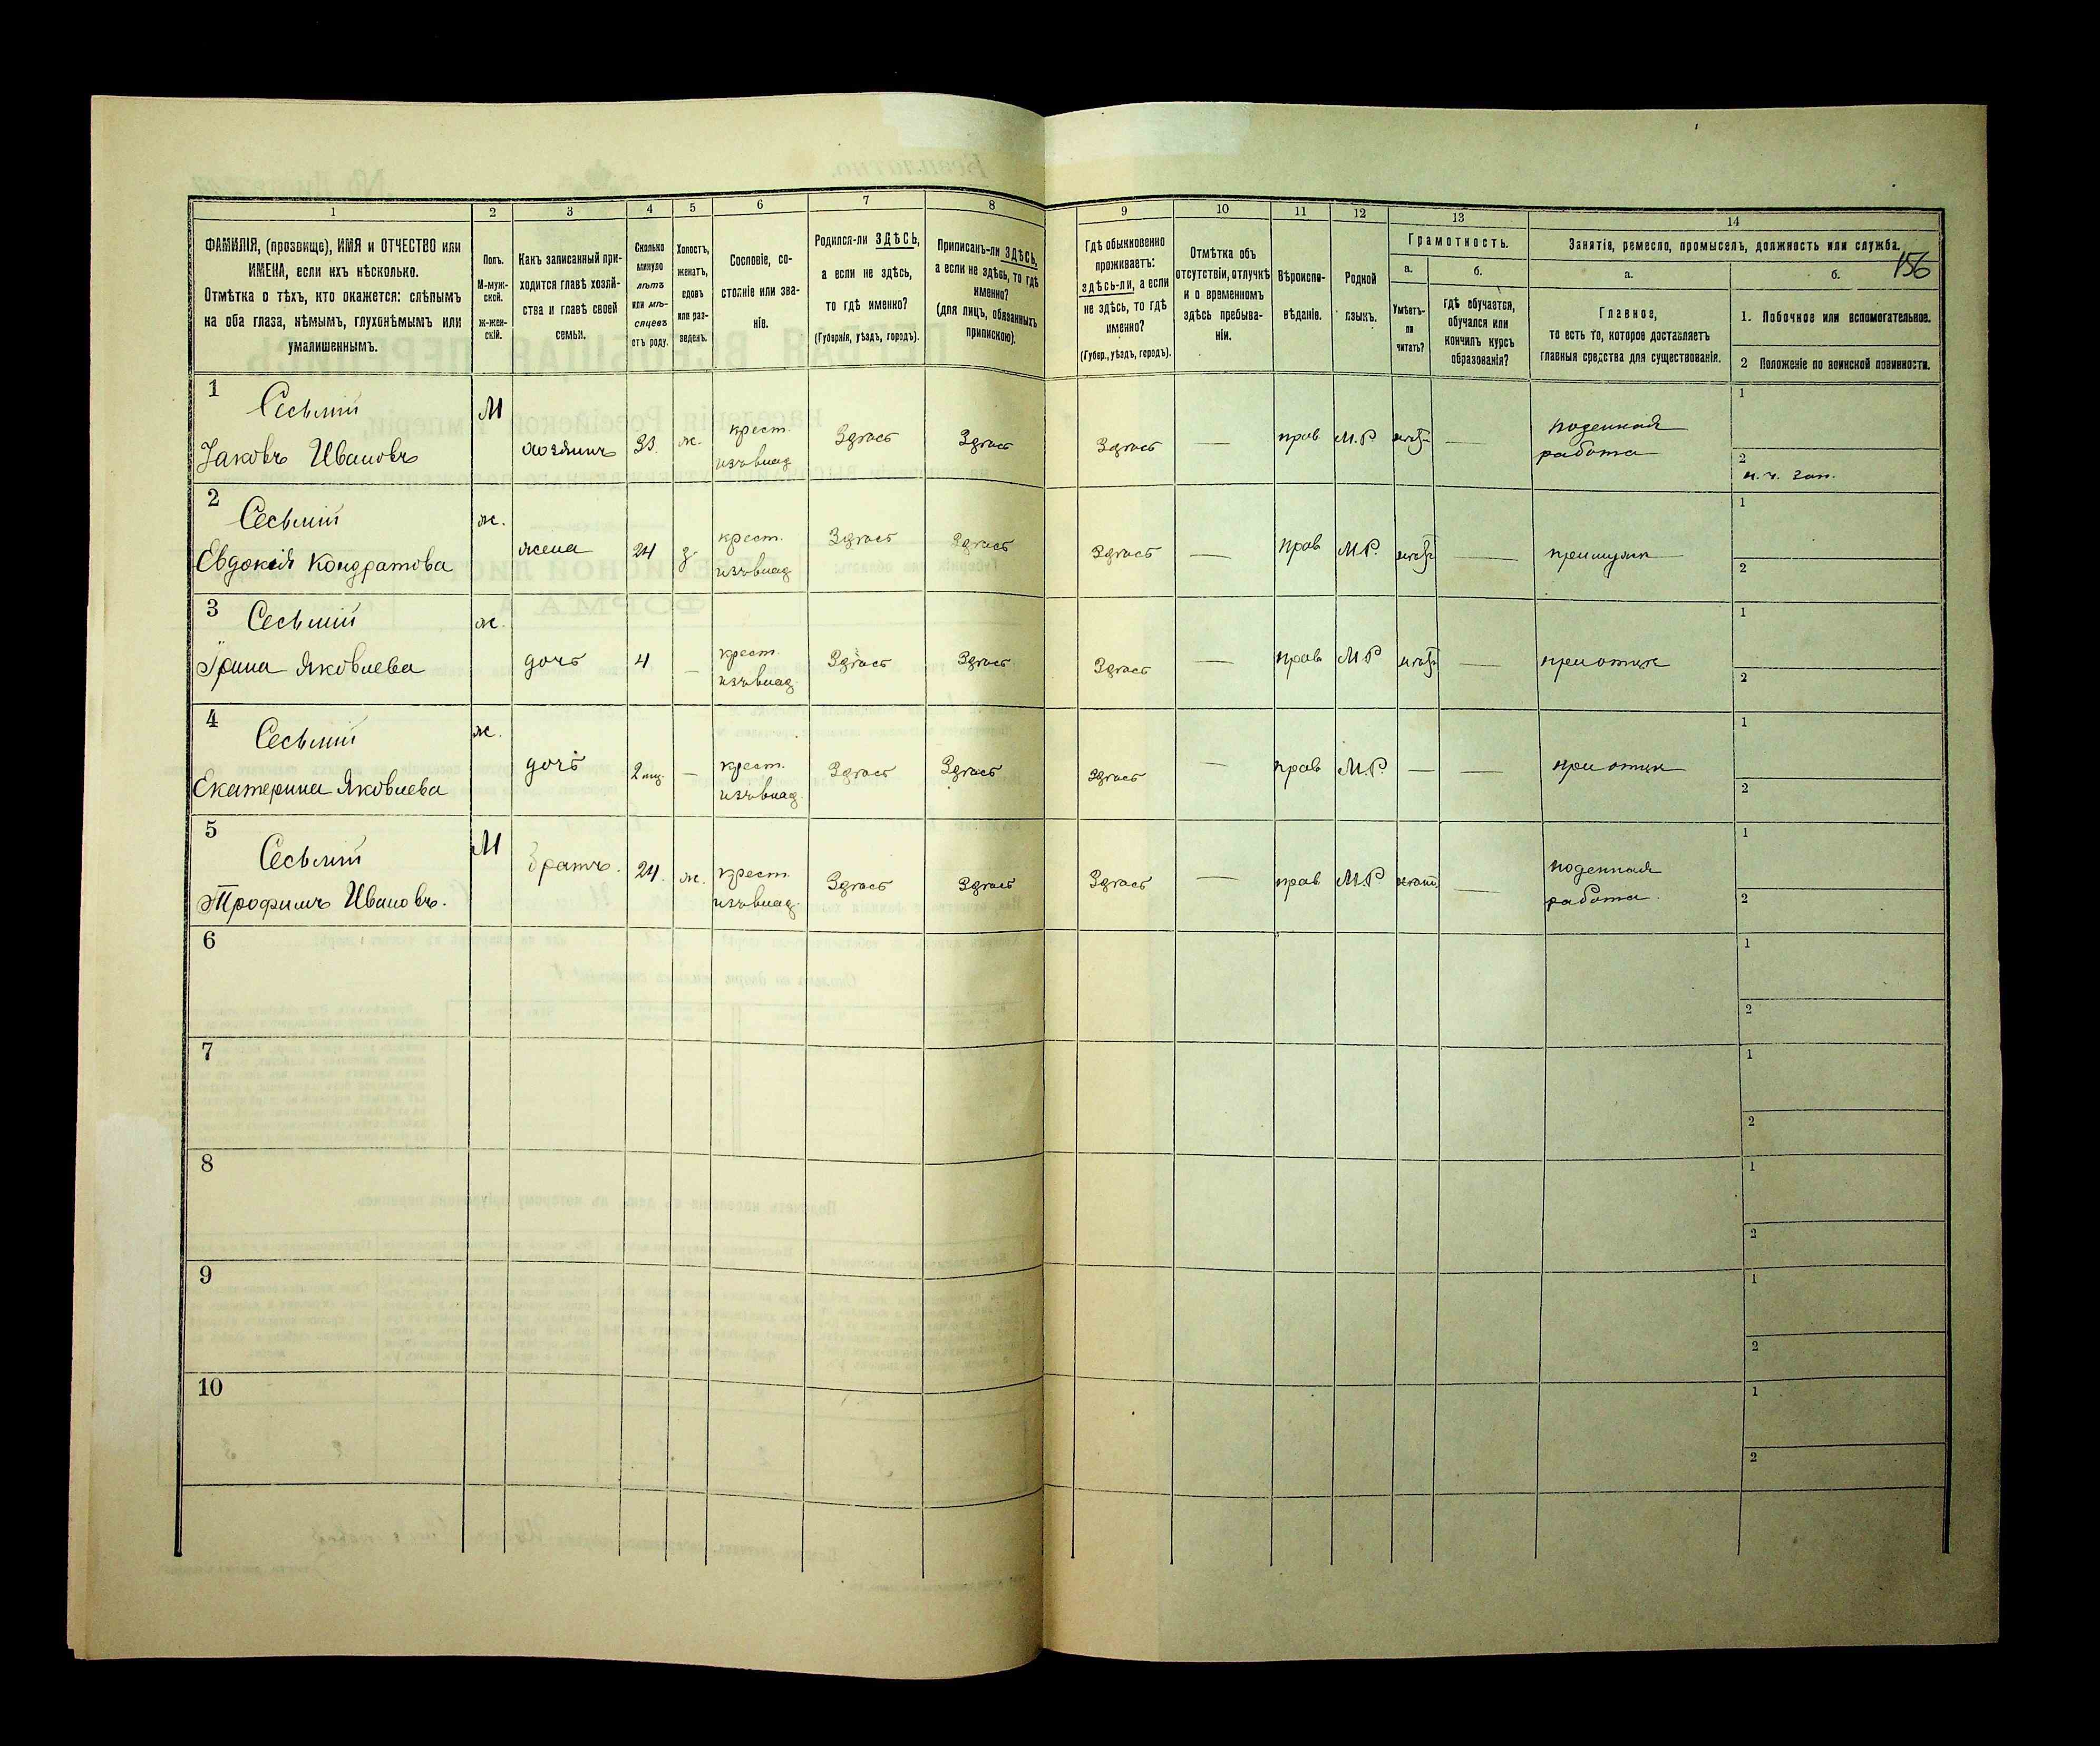 1 2 3 4 5 6 7 8 9 10 11 12 13 14
ФАМИЛІЯ, (прозвище), ИМЯ и ОТЧЕСТВО или
ИМЕНА, если ихъ нѣсколько.
Отмѣтка о тѣхъ, кто окажется: слѣпымъ
на оба глаза, нѣмымъ, глухонѣмымъ или
умалишеннымъ.
Полъ.
М-муж-
ской.
Ж-жен-
скій.
Какъ записанный при-
ходится главѣ хозяй-
ства и главѣ своей
семьи.
Сколько
минуло
лѣтъ
или мѣ-
сяцевъ
отъ роду.
Холостъ,
женатъ,
вдовъ
или раз-
веденъ.
Сословіе, со-
стояніе или зва-
ніе.
Родился-ли ЗДѢСЬ,
а если не здѣсь,
то гдѣ именно?
(Губернія, уѣздъ, городъ).
Приписанъ-ли ЗДѢСЬ,
а если не здѣсь, то гдѣ
именно?
(для лицъ, обязанныхъ
припискою).
Гдѣ обыкновенно
проживаетъ:
здѣсь-ли, а если
не здѣсь, то гдѣ
именно?
(Губер., уѣздъ, городъ).
Отмѣтка объ
отсутствіи, отлучкѣ
и о временномъ
здѣсь пребыва-
ніи.
Вѣроиспо-
вѣданіе.
Родной
языкъ.
Грамотность.
а.
Умѣетъ-
ли
читать?
б.
гдѣ обучается,
обучался или
кончилъ курсъ
образованія?
Занятія, ремесло, промыселъ, должность или служба.
156
а.
Главное,
то есть то, которое доставляетъ
главныя средства для существованія.
б.
1. Побочное или вспомогательное.
2 Положеніе по воинской повинности.
1
Яковъ Ивановъ
М
хозяинъ
33.
ж.
крест.
изъ влад.
Здѣсь
Здѣсь
Здѣсь
—
прав
М.Р
—
поденная
работа
1
2
2
Евдокія Кондратова
ж.
жена
24
з.
крест.
изъ влад.
Здѣсь
Здѣсь
Здѣсь
—
прав
М.Р.
—
при мужѣ
1
2
3
Ярина Яковлева
ж.
дочь
4
—
крест.
изъ влад.
Здѣсь
Здѣсь
Здѣсь
—
прав
М.Р
—
при отцѣ
1
2
4
Екатерина Яковлева
ж.
дочь
2 мѣц.
—
крест.
изъ влад.
Здѣсь
Здѣсь
Здѣсь
—
прав
М.Р.
—
—
при отцѣ
1
2
5
Трофимъ Ивановъ.
М
братъ.
24.
ж.
крест.
изъ влад.
Здѣсь
Здѣсь
Здѣсь
—
прав
М.Р
—
поденная
работа.
1
2
6
1
2
7
1
2
8
1
2
9
1
2
10
1
2